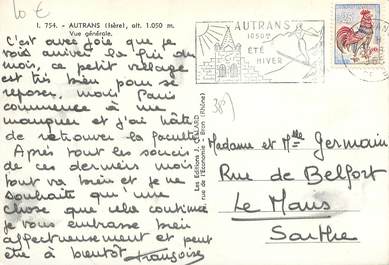 10 €
I. 754. - AUTRANS (Isère), alt. 1.050 m.
Vue générale.
C'est avec joie que je
vois arriver la fin du
mois, ce petit village
est très bien pour se
reposer, mais Paris
commence à me
manquer et j'ai hâte
de retrouver la faculté
Après tout les soucis
de ces derniers mois
tout va bien et je ne
souhaite qu'une
chose que cela continue
je vous embrasse bien
affectueusement et peut
être à bientôt Françoise
Les Editions J. CELLARD
rue de l'Economie - Bron (Rhône)
AUTRANS
1050m
ÉTÉ
HIVER
38)
Madame et Melle Germain
Rue de Belfort
Le Mans
Sarthe